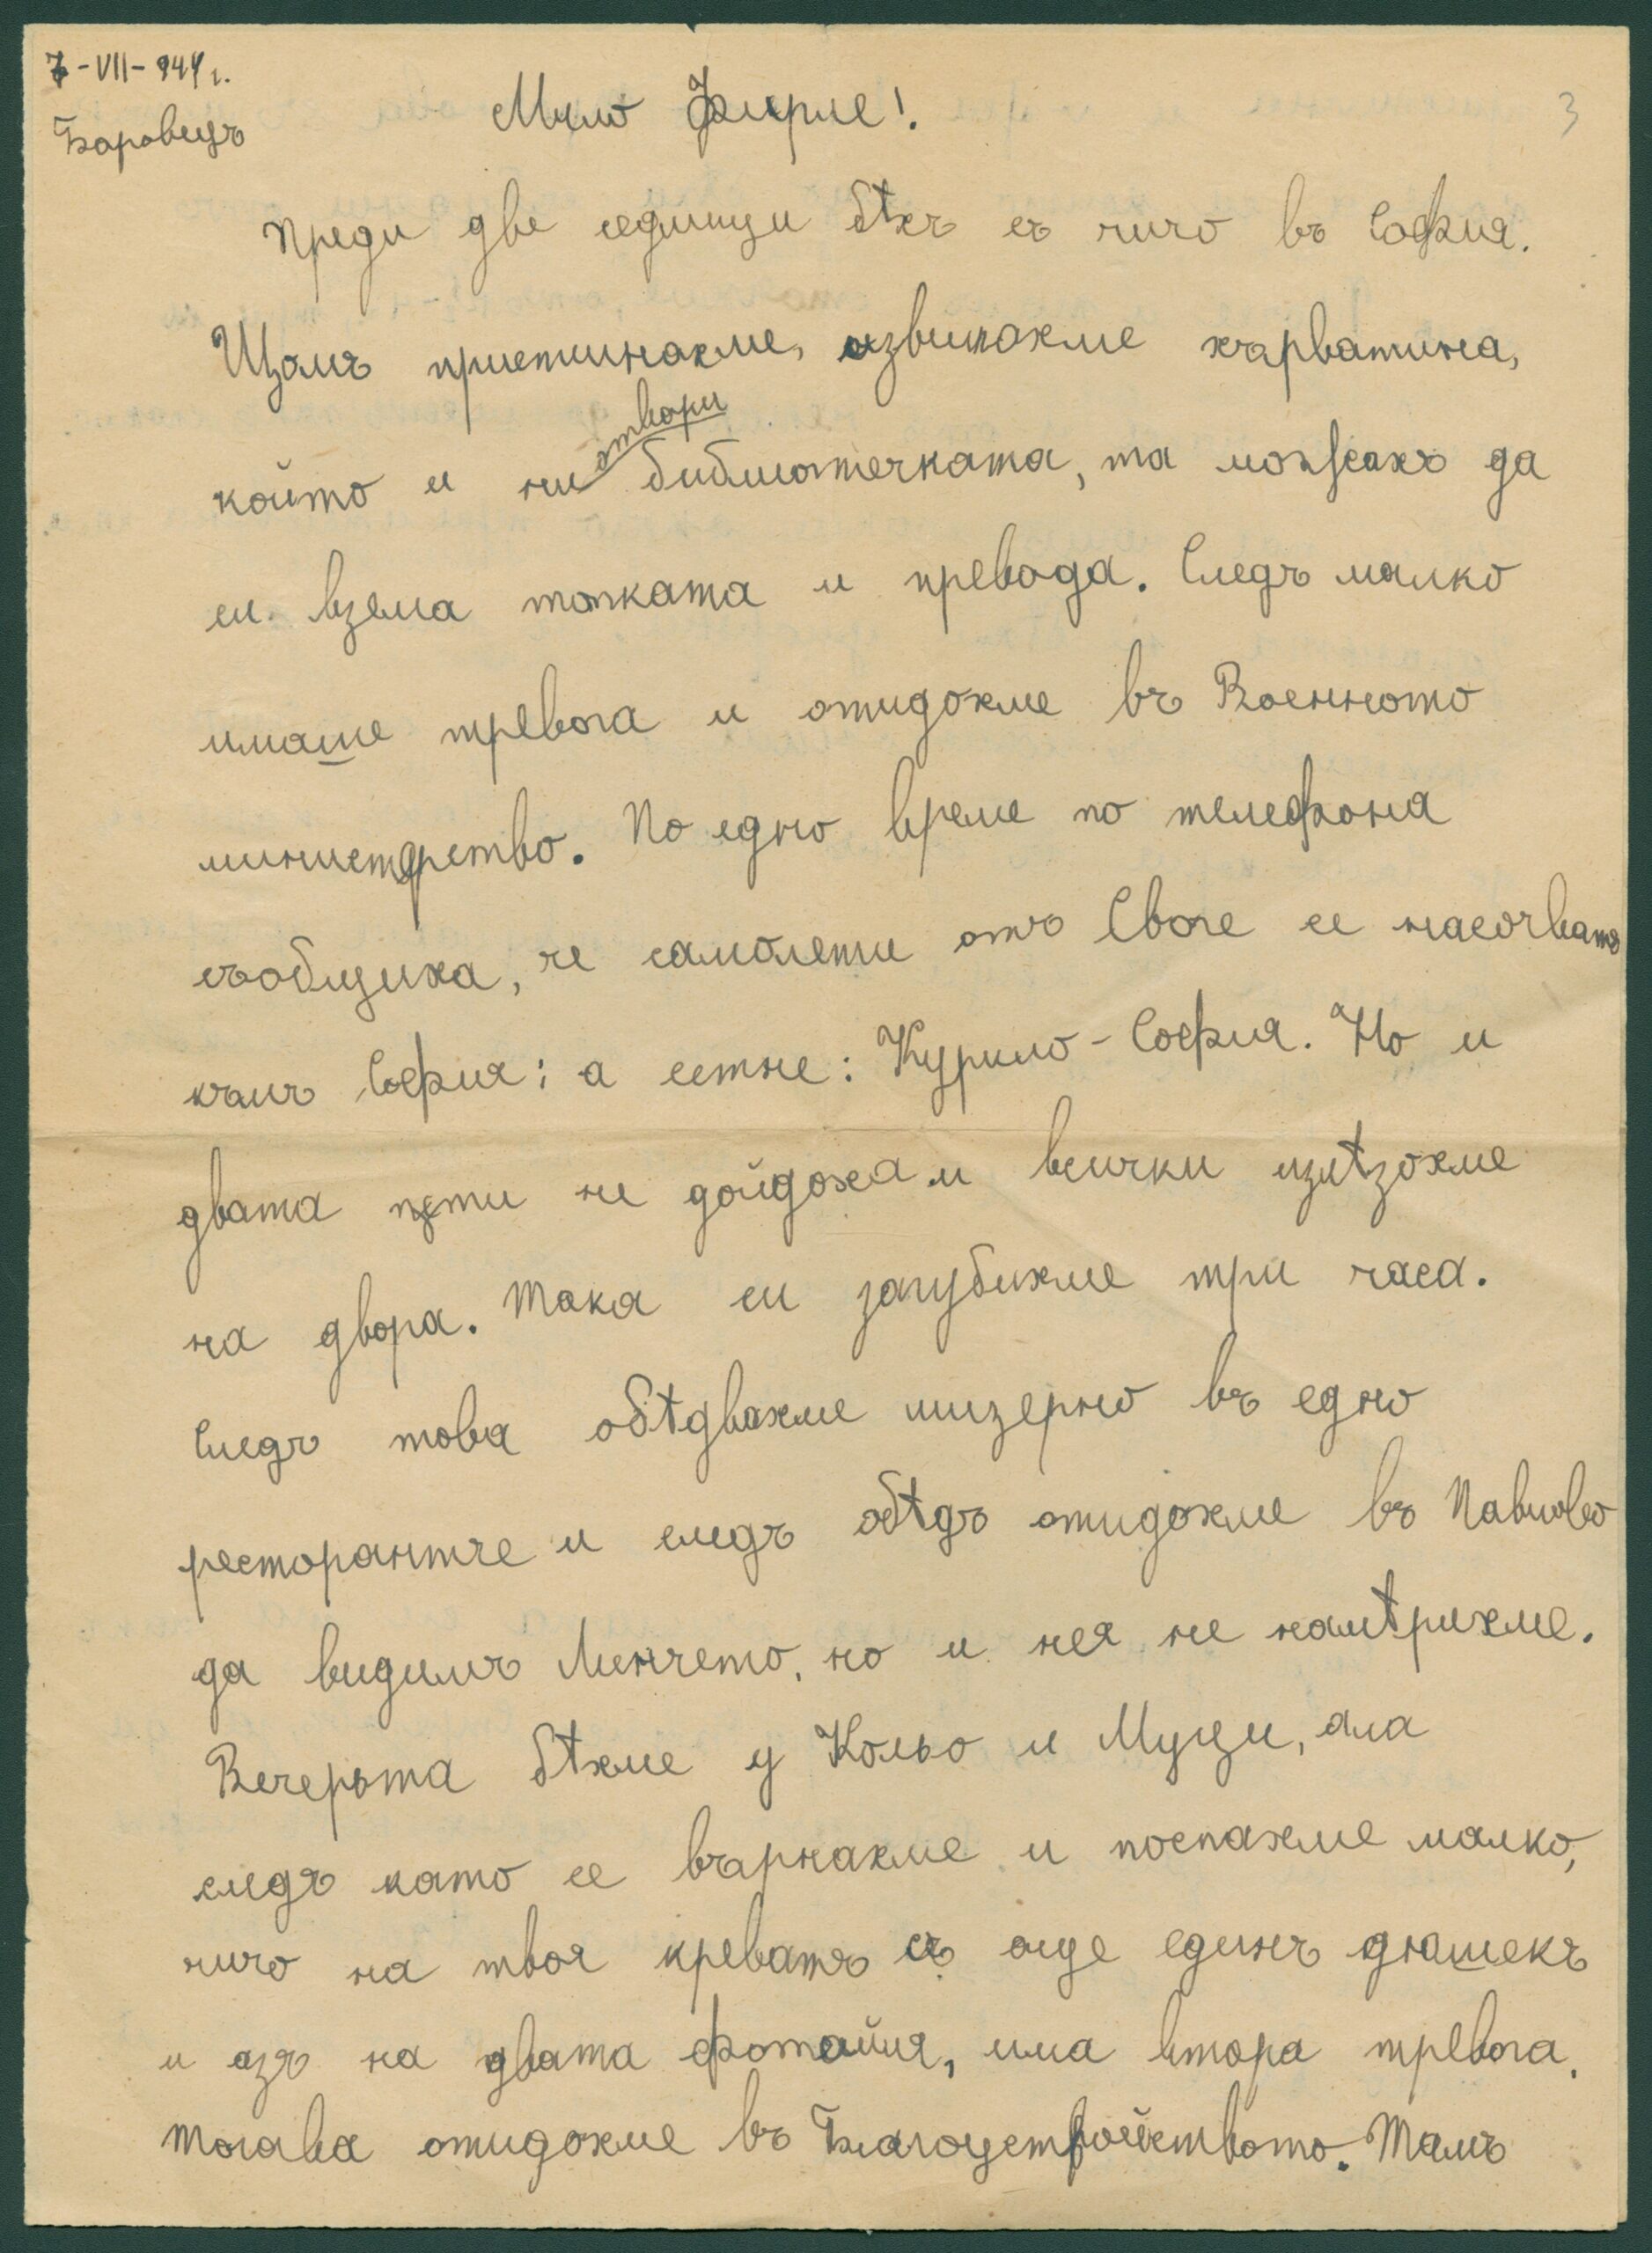 7-VII-944 г.
Боровецъ
3
Мило Фирле!
Преди две седмици бѣхъ съ чичо въ София.
Щомъ пристигнахме, извикахме хърватина,
който и ни отвори библиотечката, та можахъ да
си взема топката и превода. Следъ малко
имаше тревога и отидохме въ Военното
министерство. По едно време по телефона
съобщиха, че самолети отъ Своге се насочватъ
къмъ София; а сетне: Курило-София. Но и
двата пѫти не дойдоха и всички излѣзохме
на двора. Така си загубихме три часа.
Следъ това обѣдвахме мизерно въ едно
ресторантче и следъ обѣдъ отидохме въ Павлово
да видимъ Линчето, но и нея не намѣрихме.
Вечерьта бѣхме у Кольо и Муци, ала
следъ като се върнахме и поспахме малко,
чичо на твоя креватъ съ още единъ дюшекъ
и азъ на двата фотьойля, има втора тревога.
Тогава отидохме въ Благоустройството. Тамъ